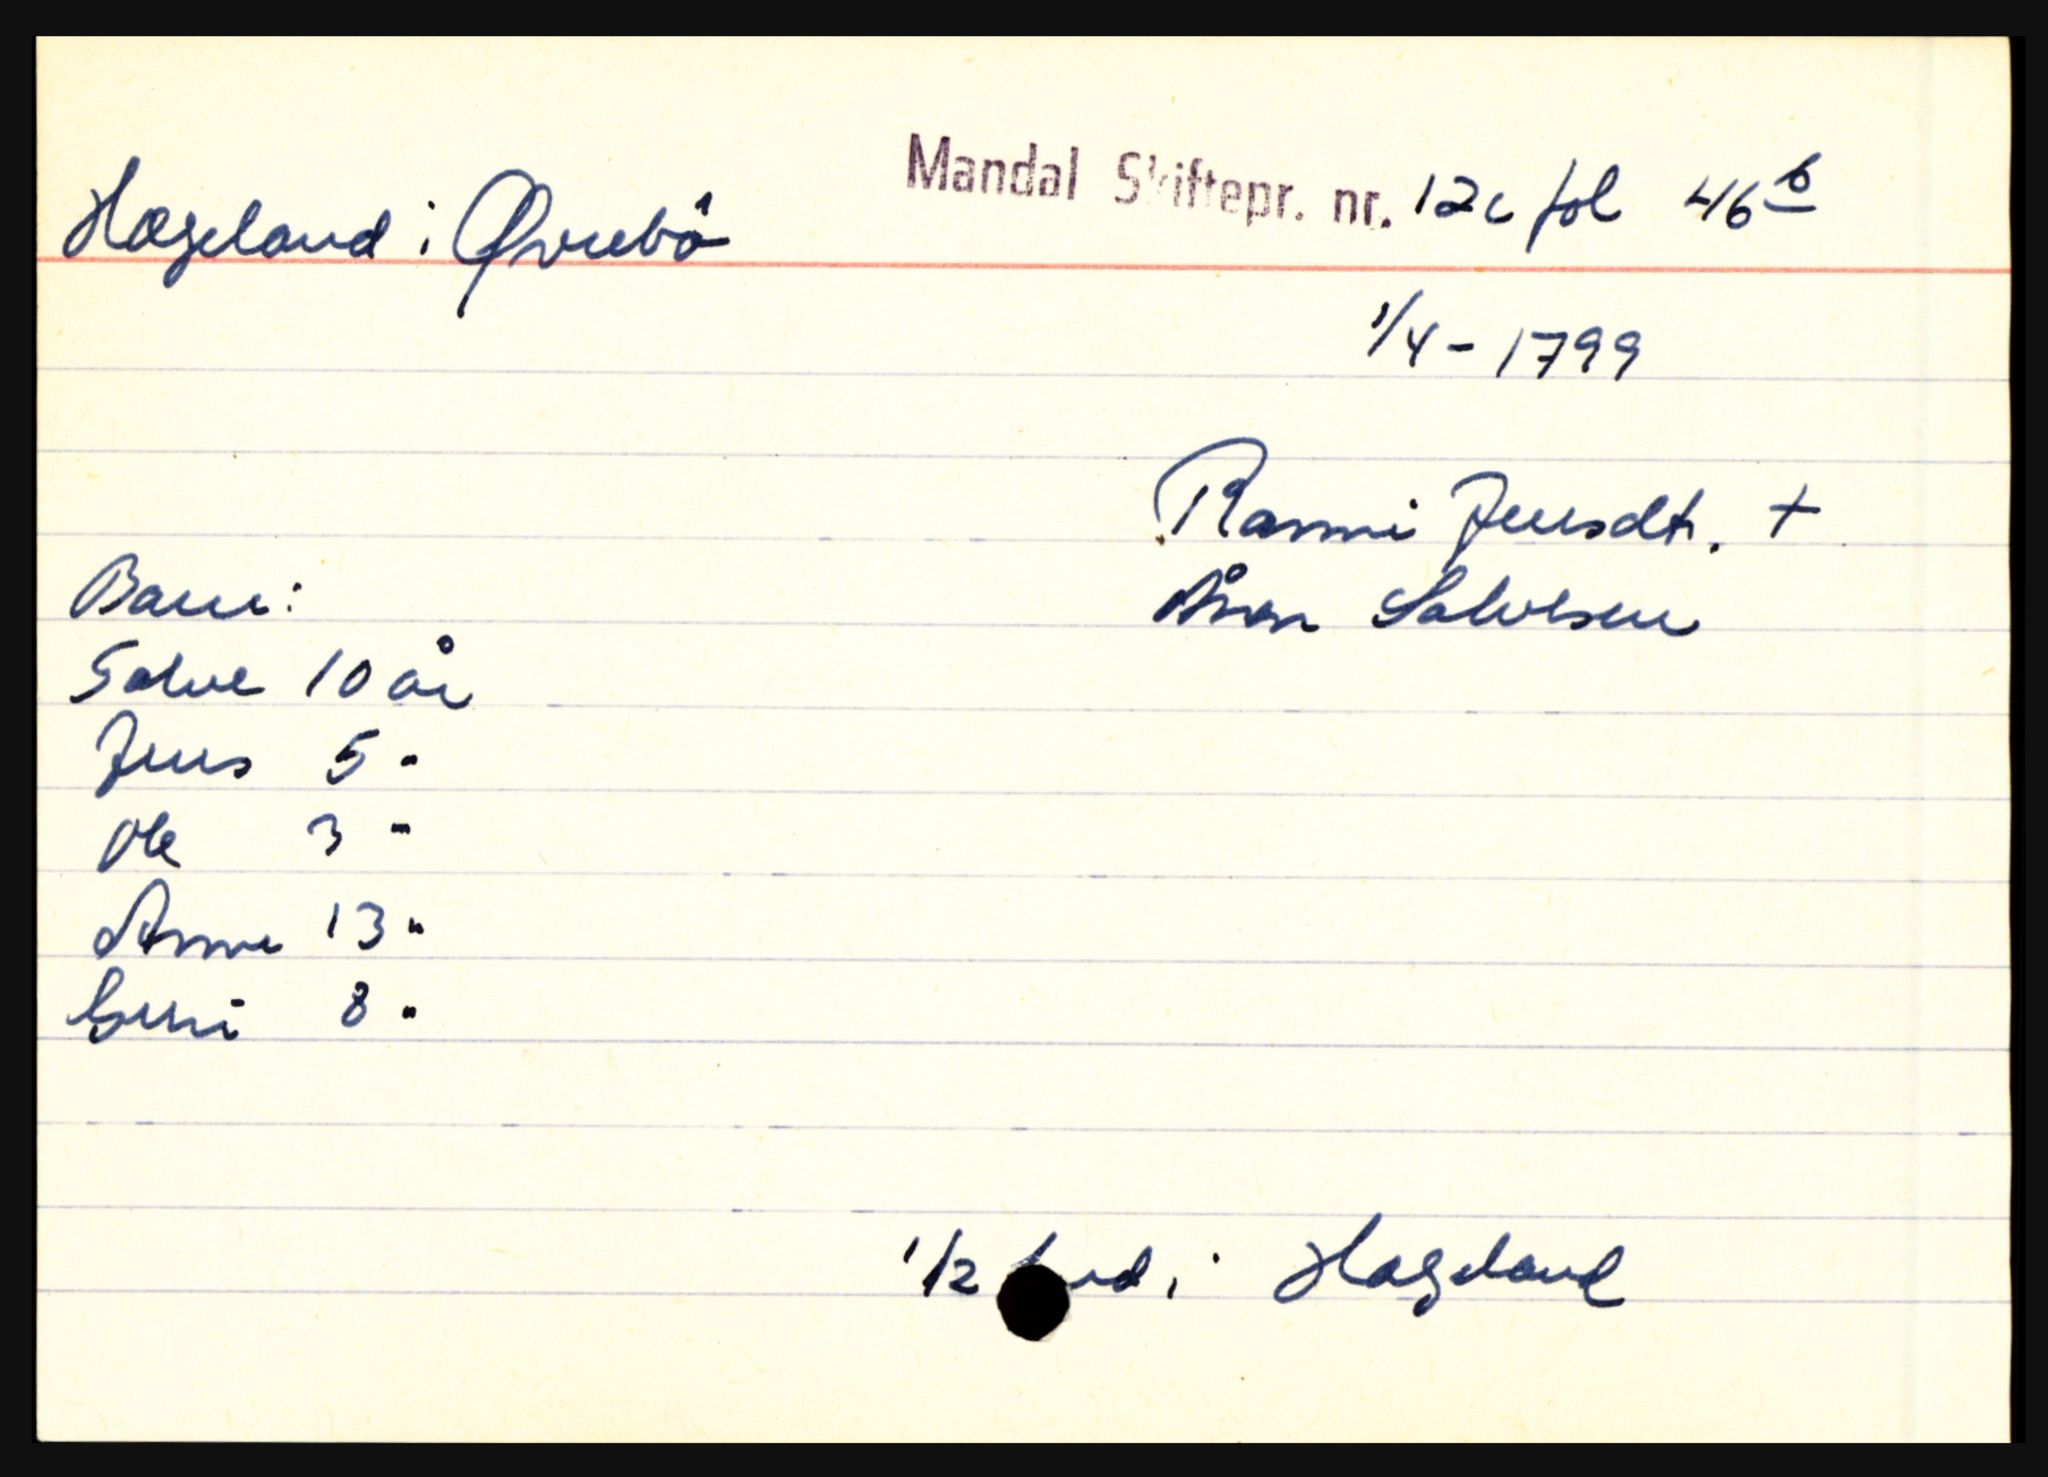 Mandal Skiftepr. nr. 12c fol 46 b
Hægeland i Øvrebö
1/4 - 1799
Ranni Jensdtr. +
Barn:
Ånen Salvesen
Salve 10 år
Jens 5 "
Ole 3 "
Anne 13 "
Guri 8 "
1/2 i Hægeland